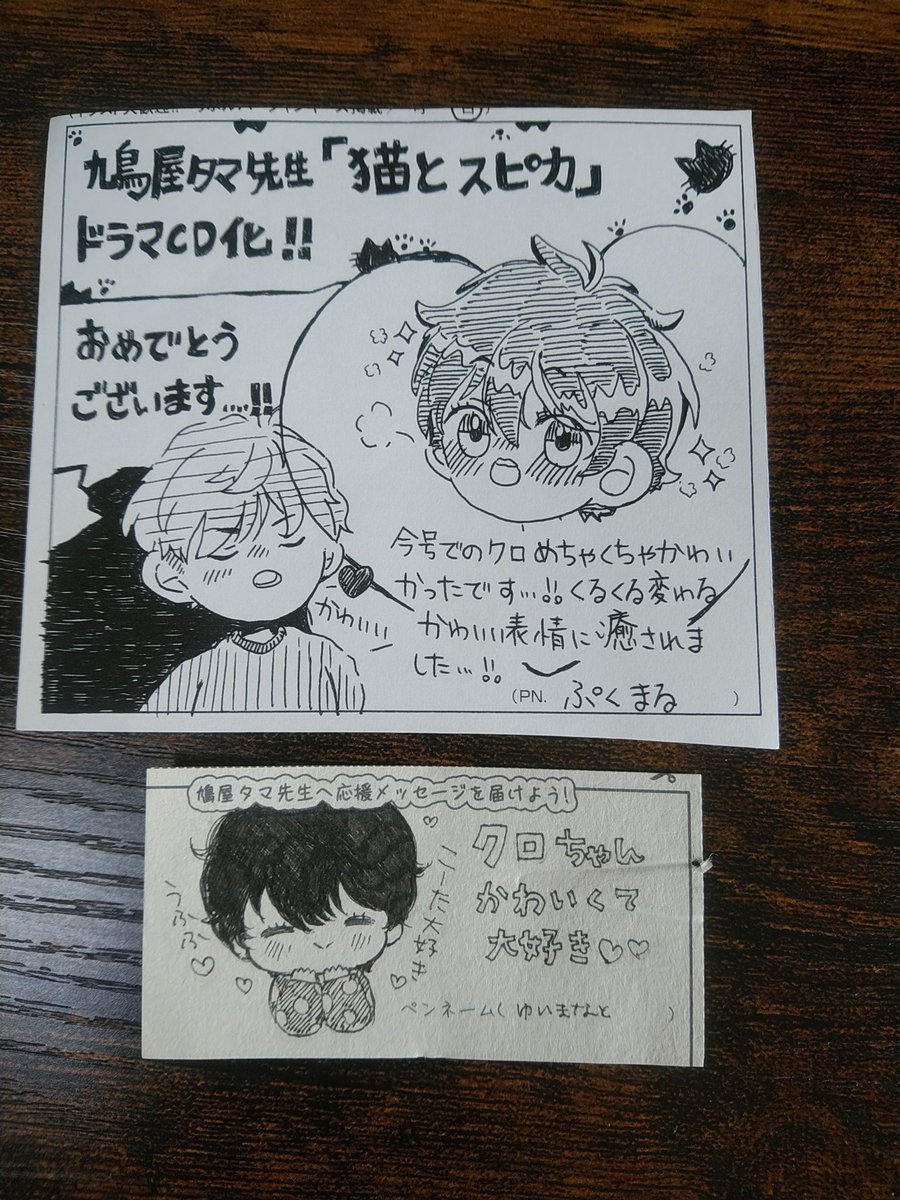 鳩屋タマ先生「猫とスピカ」
ドラマCD化!!
おめでとう
ございます...!!
かわいい
今号でのクロめちゃくちゃかわい
かったです...!!くるくる変わる
かわいい表情に癒されま
した...!!
(PN. ぷくまる )
鳩屋タマ先生へ応援メッセージを届けよう!
クロちゃん
かわいくて
大好き♡♡
こーた大好き
うふふ
ペンネーム( ゆいまなと )